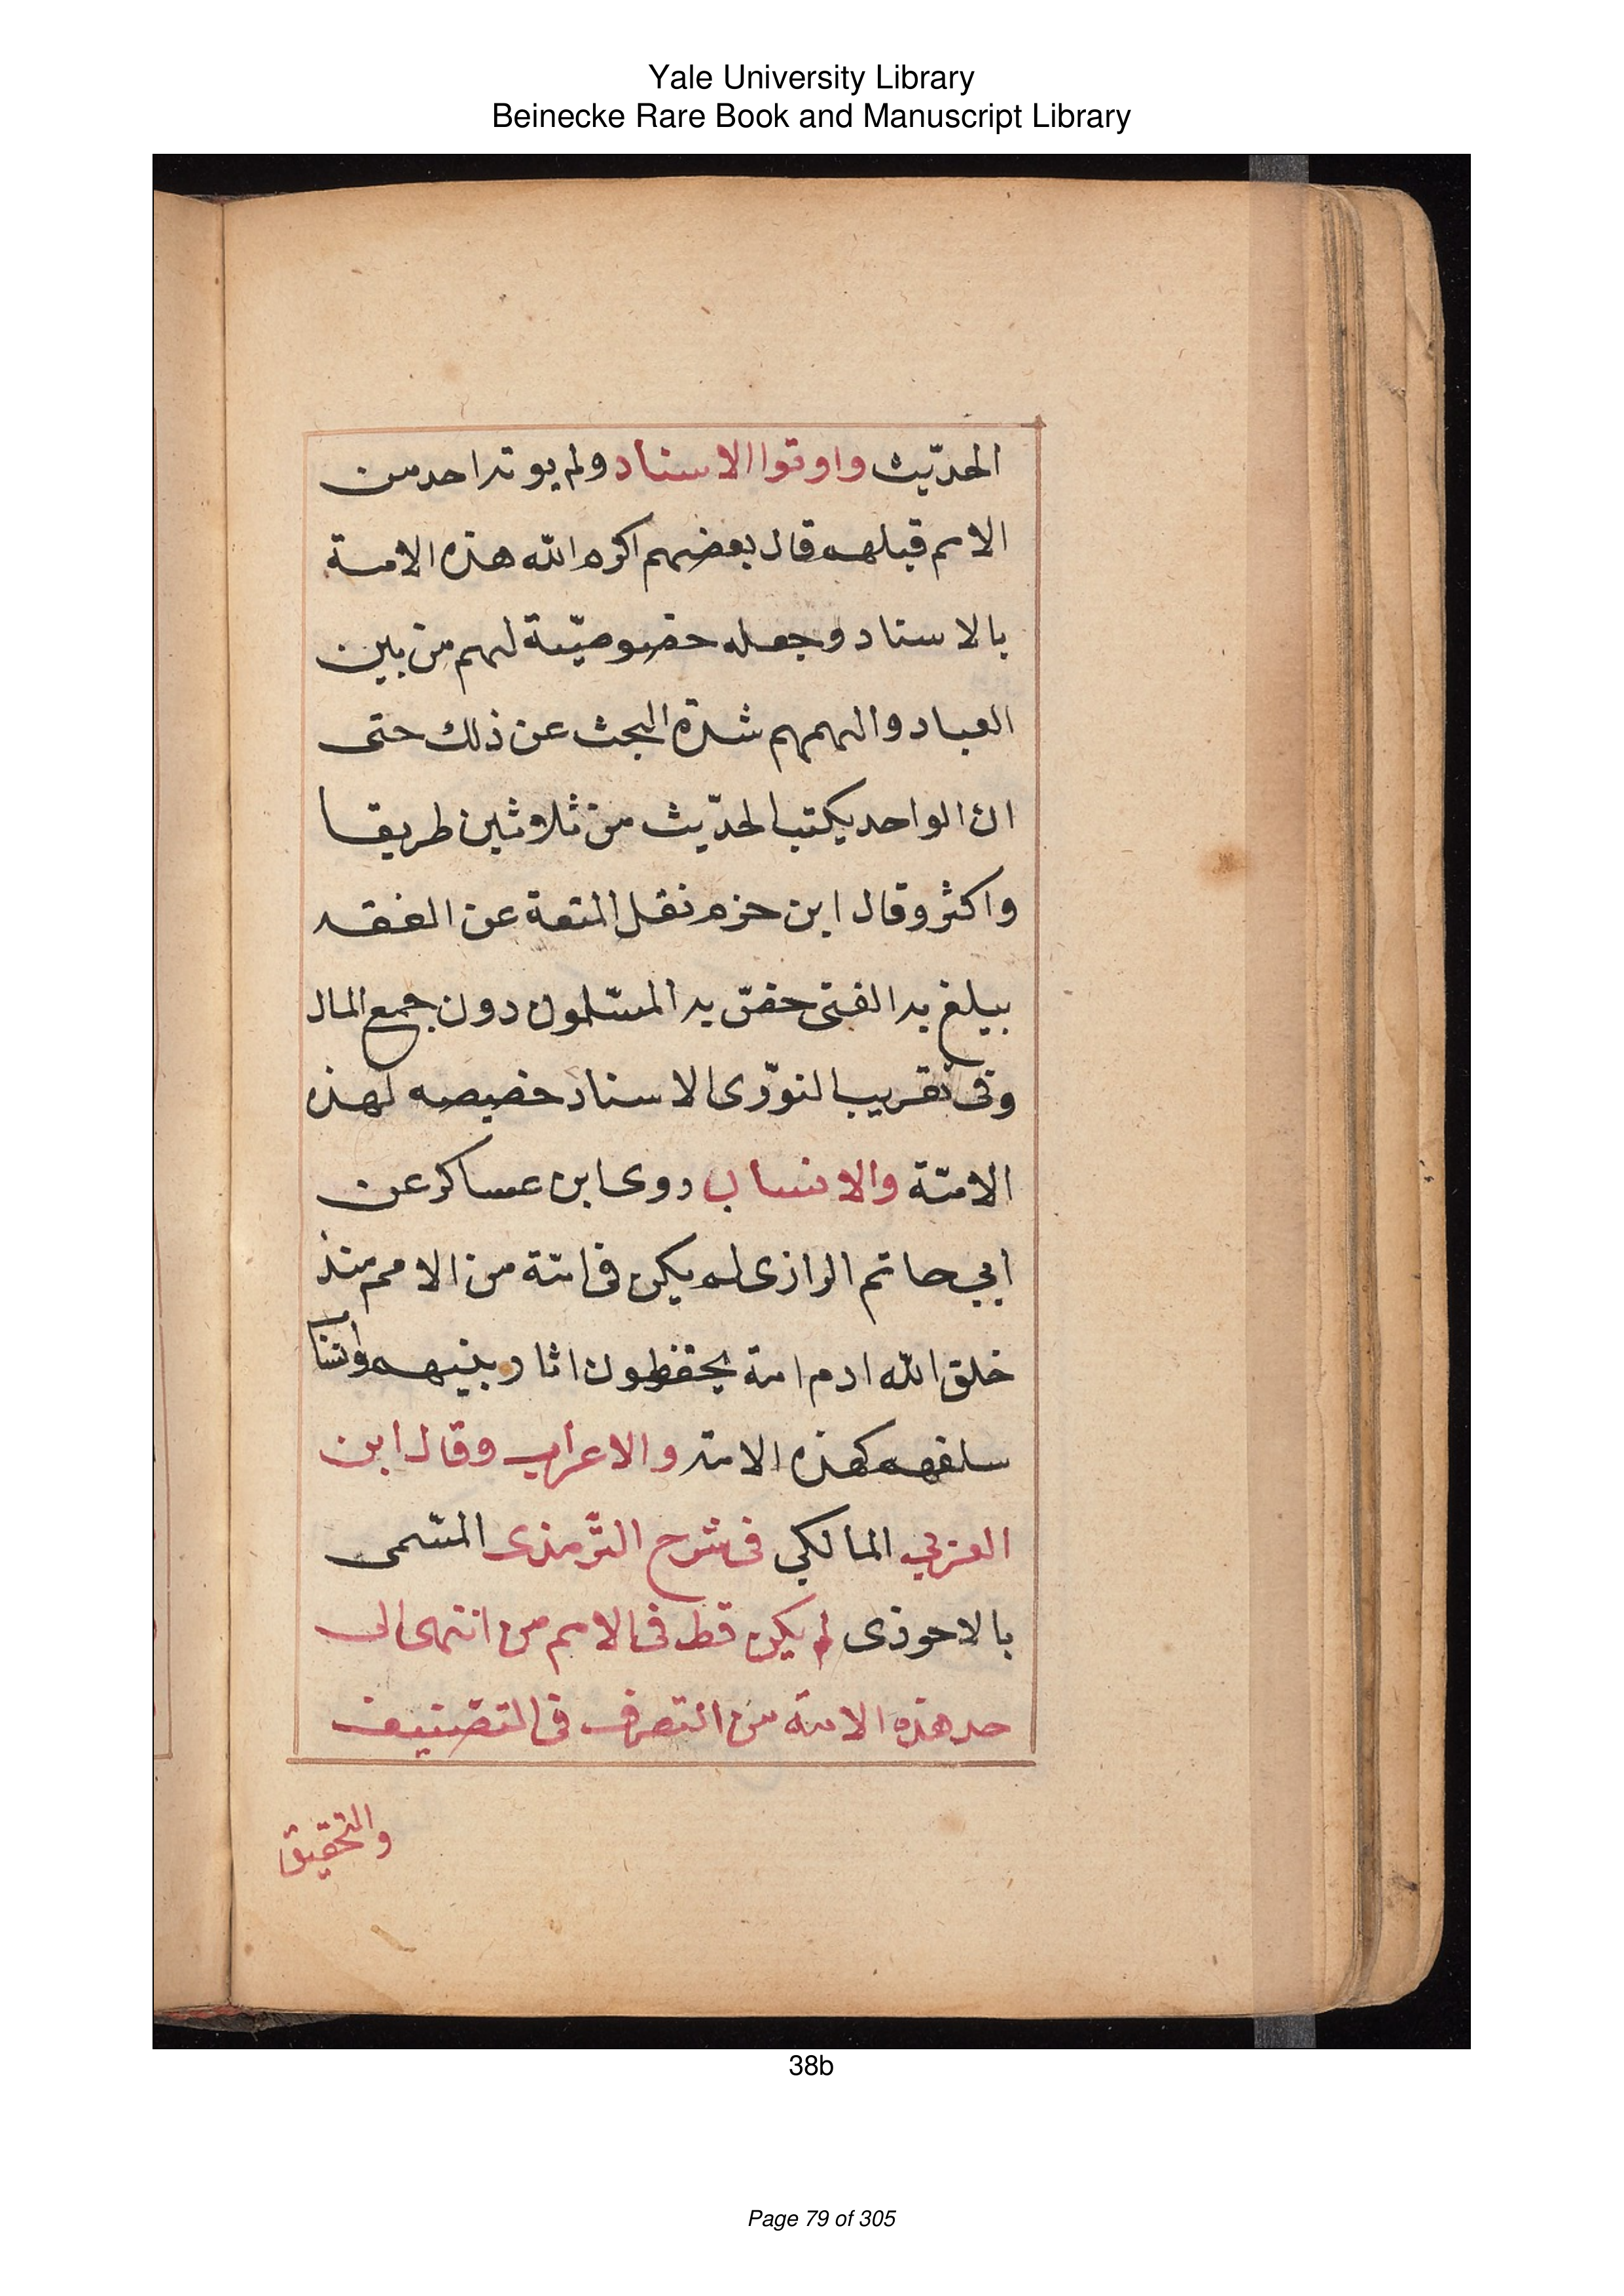 Yale University Library
Beinecke Rare Book and Manuscript Library
الحدّيث واوتوا الاسناد ولم يوته احد من
الامم قبلهم قال بعضهم اكرم الله هذه الامة
بالاسناد وجعله خضوصيّة لهم من بين
العباد والهمهم شدة البحث عن ذلك حتى
ان الواحد يكتب الحدّيث من ثلاوثين طريقا
واكثر وقال ابن حزم نقل المتعة عن الفقه
بيلغ به الفتى خضّ به المسّلمون دون جمع المال
وفى تقريب النوّوى الاسناد خضيصه لهذه
الامّة والانساب روى ابن عساكر عن
ابي حاتم الرازى لم يكن فى امّة من الامم منذ
خلق الله ادم امة يحفظون اثار بنيهم وانساب
سلفهم كهذه الامة والاعراب وقال ابن
العزبي المالكي فى شرح التّرمذى المسّمى
بالاحوذى لم يكن قط فى الامم من انتهى الى
حد هذه الامة من التصرف فى التضنيف
والتحقيق
38b
Page 79 of 305